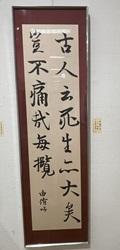 古人云死生亦大矣
豈不痛哉每攬